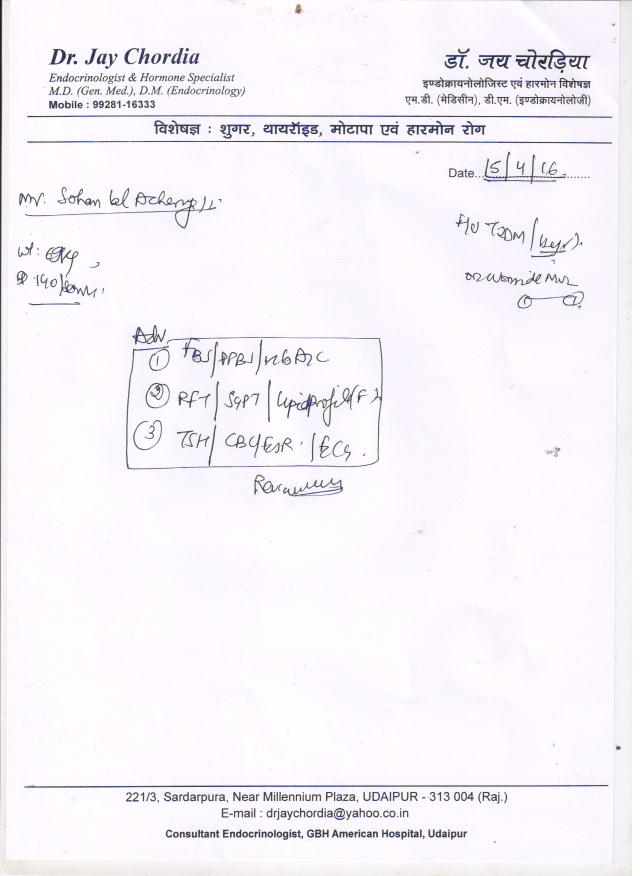 Dr. Jay Chordia
Endocrinologist & Hormone Specialist
M.D. (Gen. Med.), D.M. (Endocrinology)
Mobile : 99281-16333
डॉ. जय चोरड़िया
इण्डोक्रायनोलोजिस्ट एवं हारमोन विशेषज्ञ
एम.डी. (मेडिसीन), डी.एम. (इण्डोक्रायनोलोजी)
विशेषज्ञ : शुगर, थायरॉइड, मोटापा एवं हारमोन रोग
Date.. 15/4/16 .......
Mr. Sohan lal
F/U T2DM /
wt:
140/
Adv
① FBS/PPBS/HbA1C
② RFT/SGPT/Lipid profile (F)
③ TSH/CBC/ESR/ECG.
221/3, Sardarpura, Near Millennium Plaza, UDAIPUR - 313 004 (Raj.)
E-mail : drjaychordia@yahoo.co.in
Consultant Endocrinologist, GBH American Hospital, Udaipur